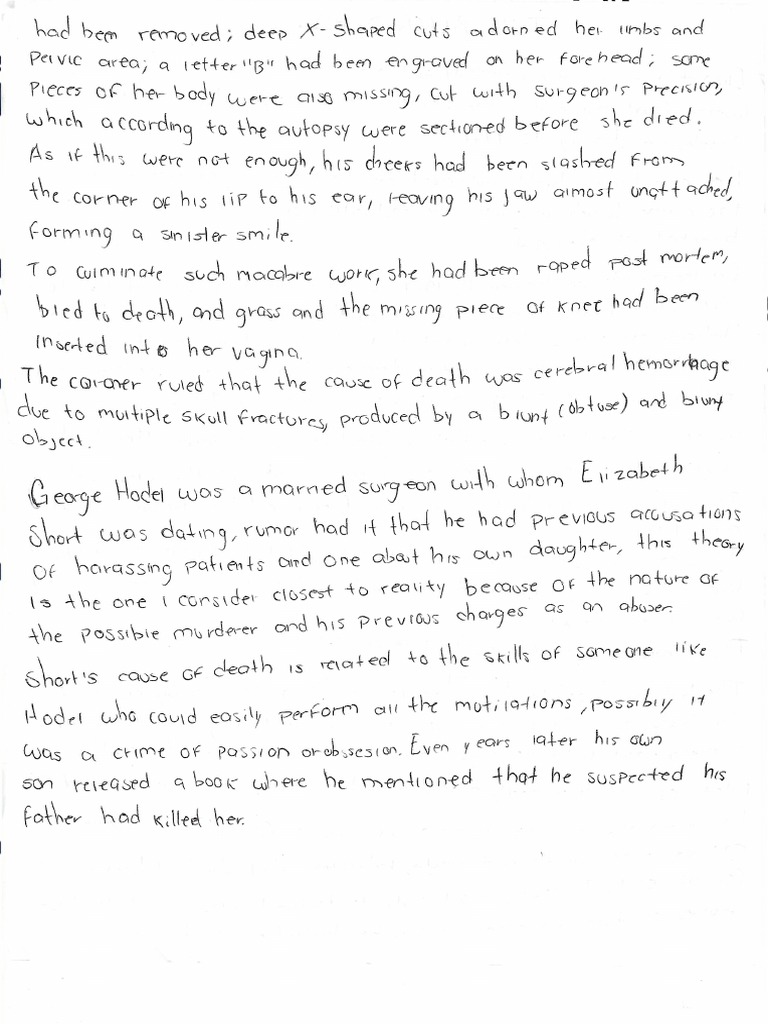 had been removed; deep X-shaped cuts adorned her limbs and
Pelvic area; a letter "B" had been engraved on her forehead; some
Pieces of her body were also missing, cut with surgeon's precision,
which according to the autopsy were sectioned before she died.
As if this were not enough, his cheeks had been slashed from
the corner of his lip to his ear, leaving his jaw almost unattached,
forming a sinister smile.
To culminate such macabre work, she had been raped post mortem,
bled to death, and grass and the missing piece of knee had been
inserted into her vagina.
The coroner ruled that the cause of death was cerebral hemorrhage
due to multiple skull fractures, produced by a blunt (obtuse) and blunt
object.
George Hodel was a married surgeon with whom Elizabeth
Short was dating, rumor had it that he had previous accusations
of harassing patients and one about his own daughter, this theory
is the one i consider closest to reality because of the nature of
the possible murderer and his previous charges as an abuser.
Short's cause of death is related to the skills of someone like
Hodel who could easily perform all the motilations, possibly it
was a crime of passion or obssesion. Even years later his own
son released a book where he mentioned that he suspected his
father had killed her.